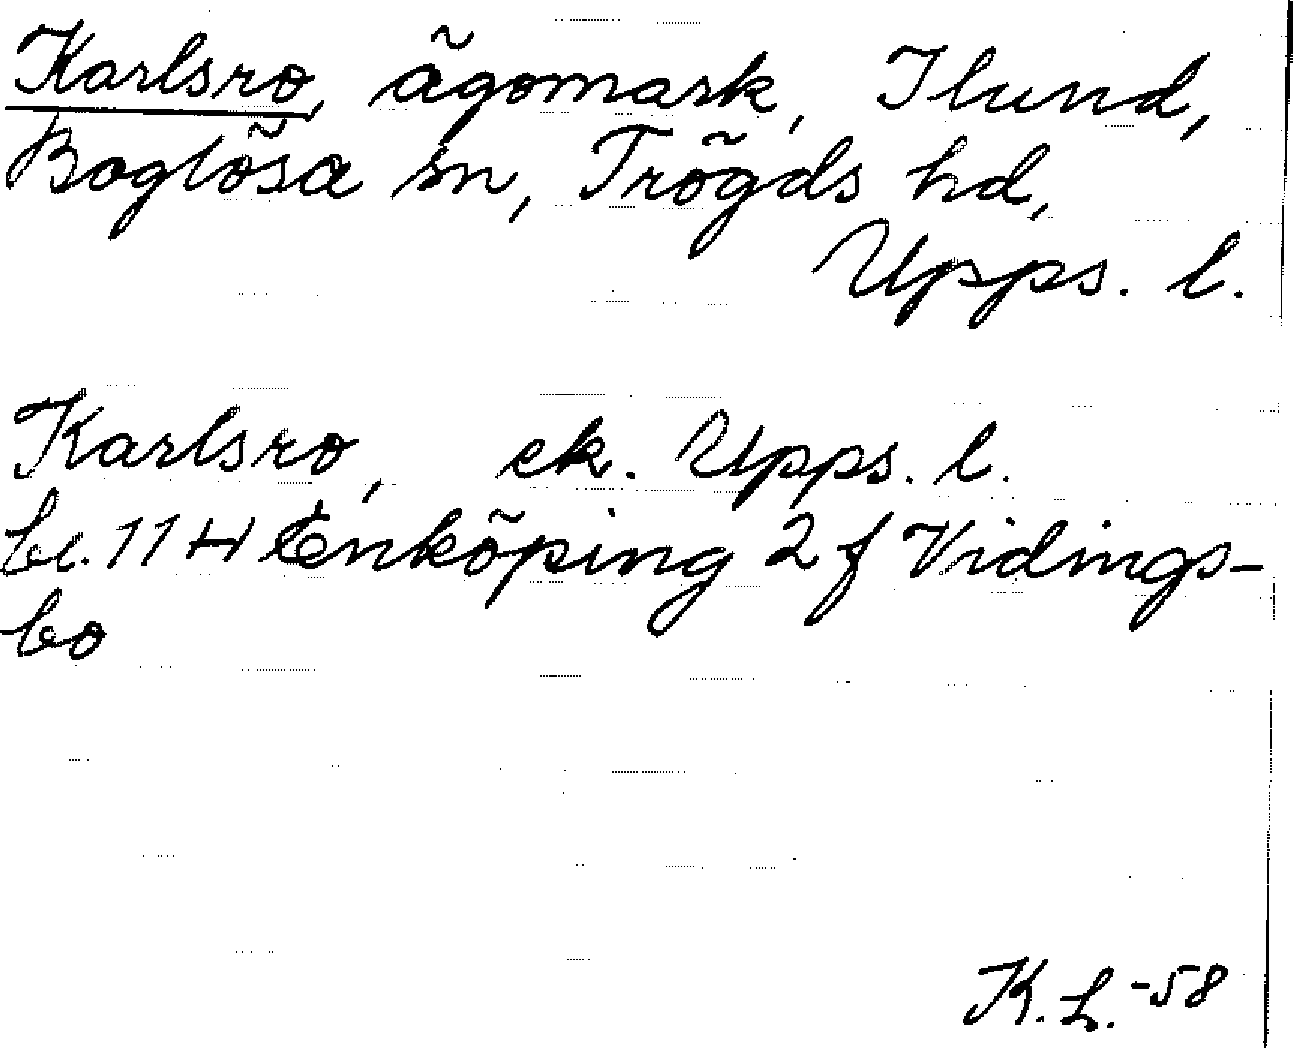 Karlsro, ägomark, Ilund,
Boglösa sn, Trögds hd,
Upps. l.
Karlsro, ek. Upps. l.
bl. 11 H Enköping 2 f Vidings-
bo
K. L. -58